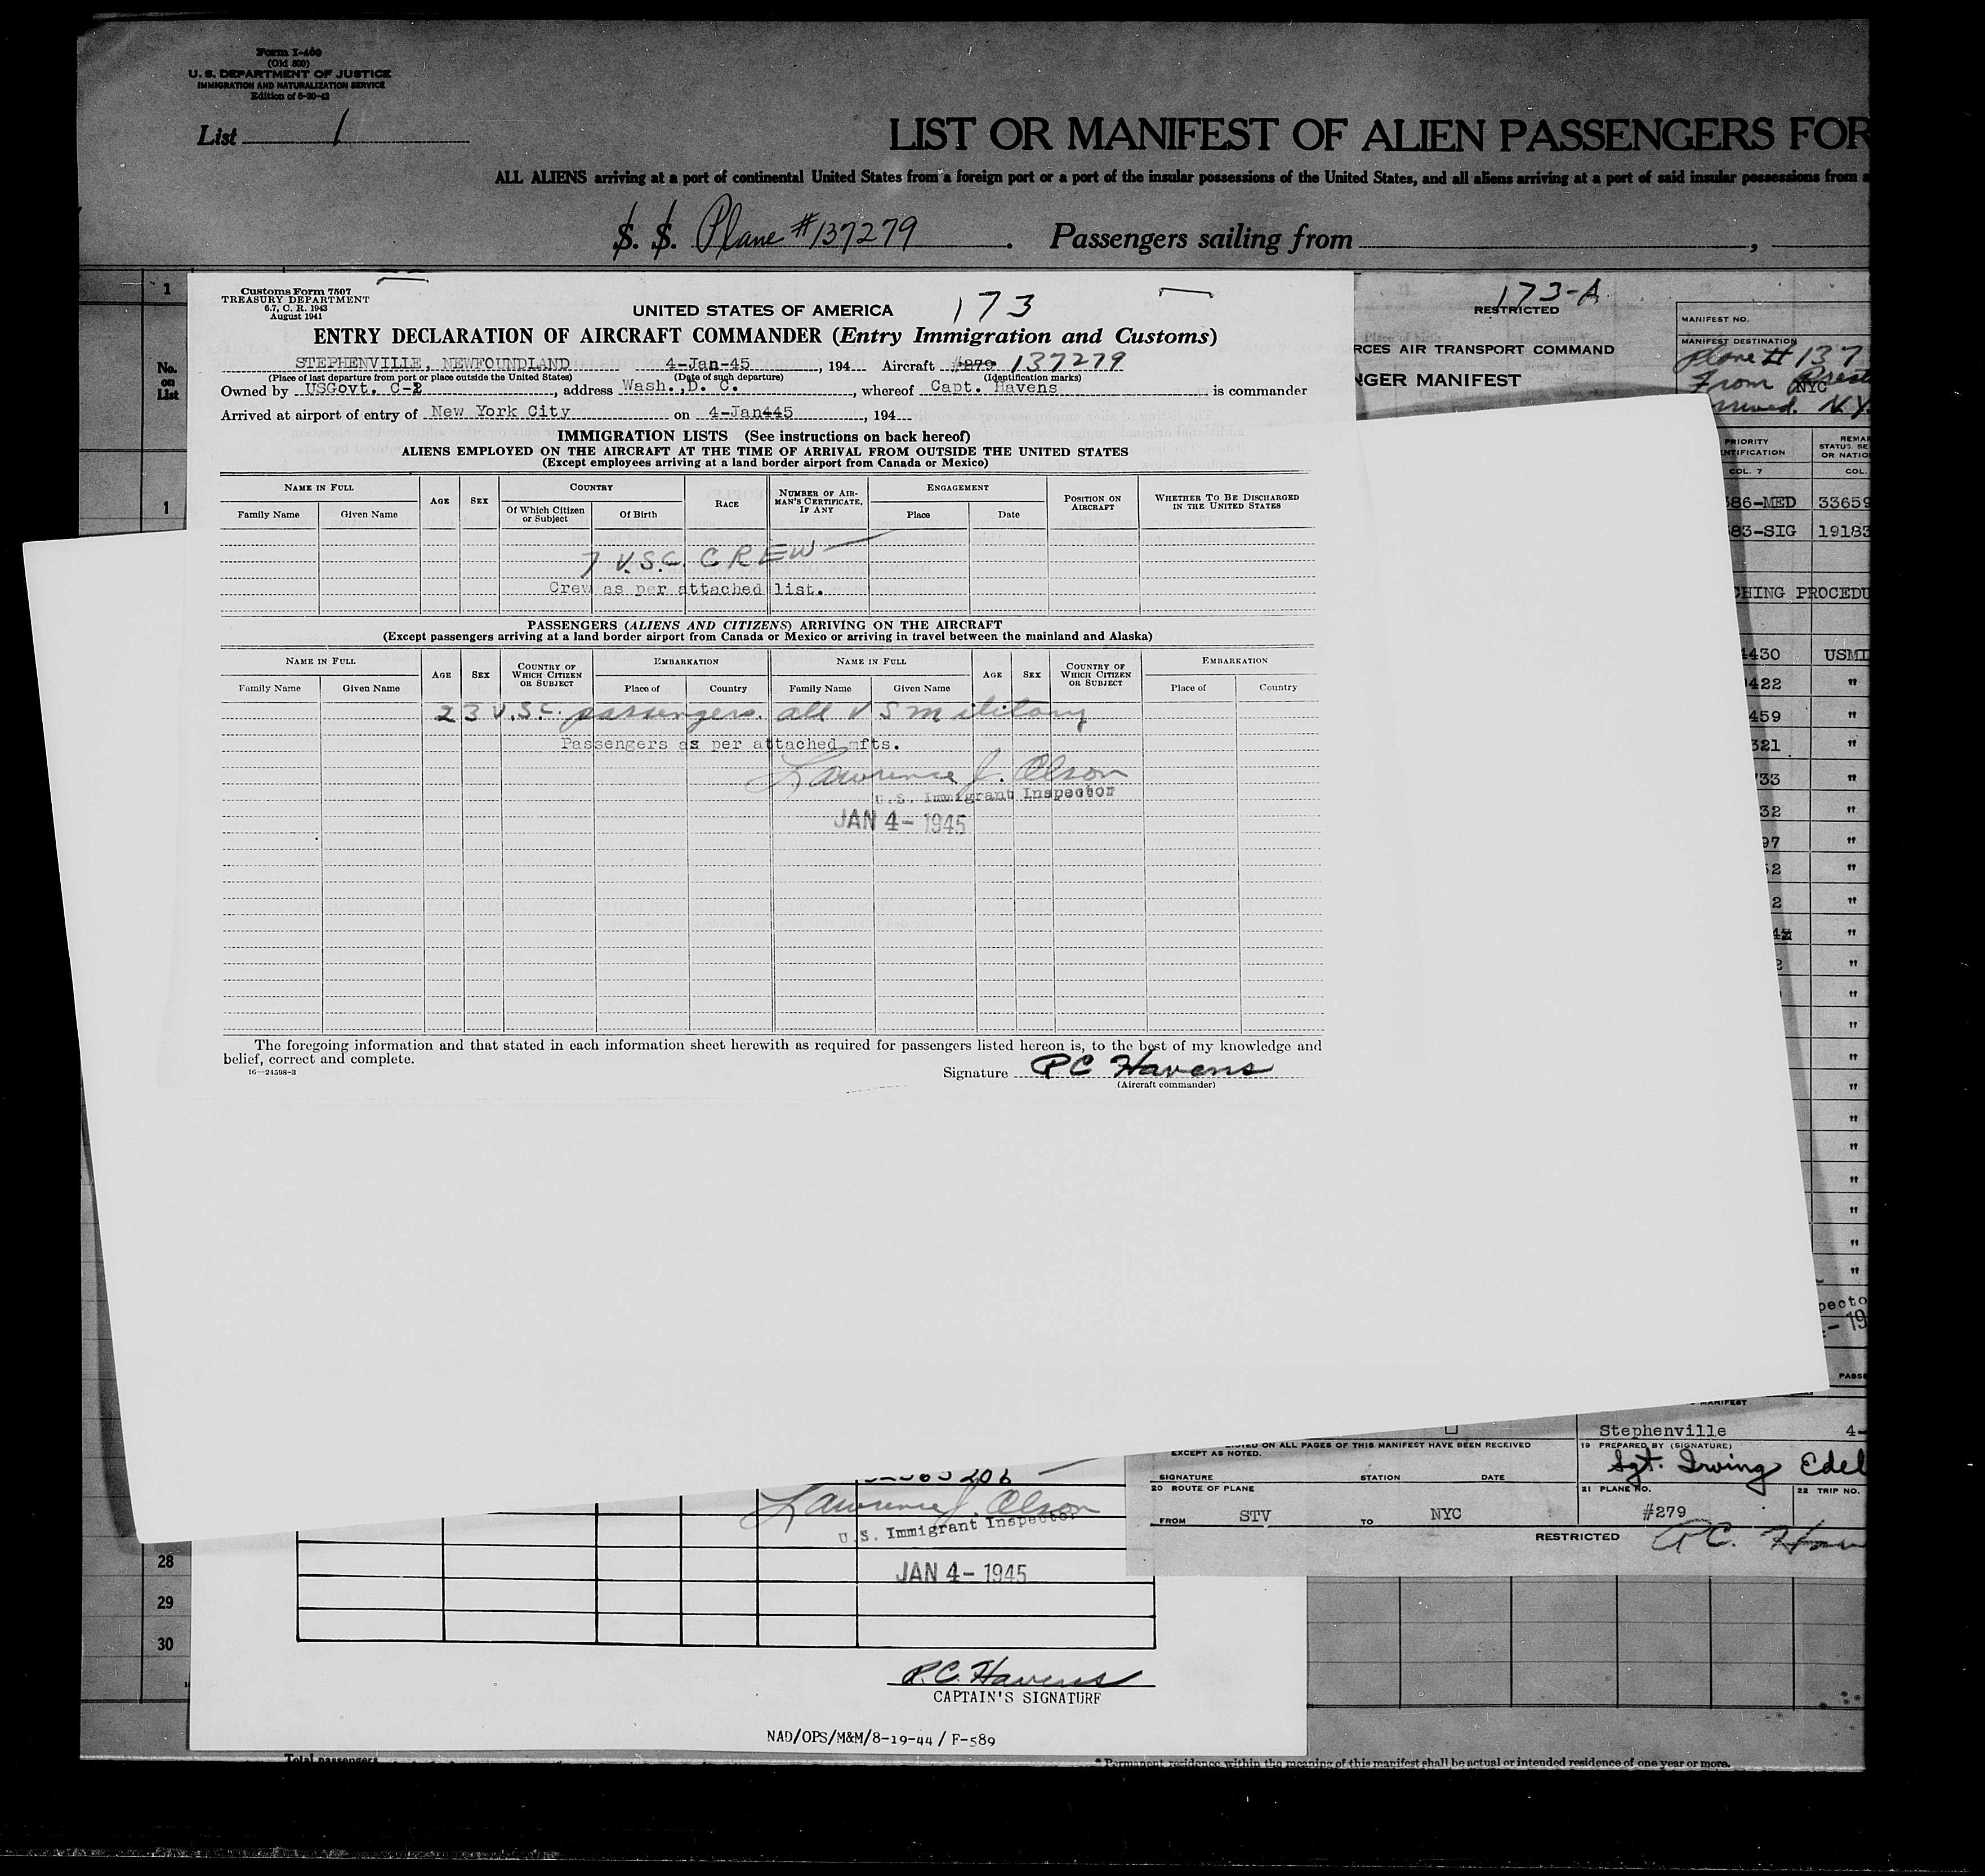 Form I-460
(Old 500)
U. S. DEPARTMENT OF JUSTICE
IMMIGRATION AND NATURALIZATION SERVICE
Edition of 6-20-42
List 1
LIST OR MANIFEST OF ALIEN PASSENGERS FOR
ALL ALIENS arriving at a port of continental United States from a foreign port or a port of the insular possessions of the United States, and all aliens arriving at a port of said insular possessions from a
S. S. Plane #137279 . Passengers sailing from ,
1
No.
on
List
1
Customs Form 7507
TREASURY DEPARTMENT
6.7, C. R. 1943
August 1941
UNITED STATES OF AMERICA 173
ENTRY DECLARATION OF AIRCRAFT COMMANDER (Entry Immigration and Customs)
STEPHENVILLE, NEWFOUNDLAND 4-Jan-45, 194 Aircraft #279 137279
(Place of last departure from port or place outside the United States) (Date of such departure) (Identification marks)
Owned by USGovt. C-2, address Wash.,D. C., whereof Capt. Havens is commander
Arrived at airport of entry of New York City on 4-Jan445, 194
IMMIGRATION LISTS (See instructions on back hereof)
ALIENS EMPLOYED ON THE AIRCRAFT AT THE TIME OF ARRIVAL FROM OUTSIDE THE UNITED STATES
(Except employees arriving at a land border airport from Canada or Mexico)
NAME IN FULL AGE SEX COUNTRY RACE NUMBER OF AIRMAN'S CERTIFICATE, IF ANY ENGAGEMENT POSITION ON AIRCRAFT WHETHER TO BE DISCHARGED IN THE UNITED STATES
Family Name Given Name Of Which Citizen or Subject Of Birth Place Date
7 U.S.C. CREW
Crew as per attached list.
PASSENGERS (ALIENS AND CITIZENS) ARRIVING ON THE AIRCRAFT
(Except passengers arriving at a land border airport from Canada or Mexico or arriving in travel between the mainland and Alaska)
NAME IN FULL AGE SEX COUNTRY OF WHICH CITIZEN OR SUBJECT EMBARKATION NAME IN FULL AGE SEX COUNTRY OF WHICH CITIZEN OR SUBJECT EMBARKATION
Family Name Given Name Place of Country Family Name Given Name Place of Country
23 U.S.C. passengers. all U S military
Passengers as per attached mfts.
Lawrence J. Olson
U.S. Immigrant Inspector
JAN 4- 1945
The foregoing information and that stated in each information sheet herewith as required for passengers listed hereon is, to the best of my knowledge and
belief, correct and complete.
16—24598-3
Signature PC Havens
(Aircraft commander)
173-A
RESTRICTED
RCES AIR TRANSPORT COMMAND
NGER MANIFEST
MANIFEST NO.
MANIFEST DESTINATION
Plane # 137
From Prest
NYC
N.Y.
PRIORITY
NTIFICATION
COL. 7
REMA
STATUS, SE
OR NATIO
COL.
86-MED 33659
83-SIG 19183
CHING PROCEDU
430 USMI
422 "
459 "
321 "
733 "
32 "
97 "
52 "
2 "
"
2 "
"
"
"
"
"
"
"
"
"
"
pecto
- 19
PASSE
MANIFEST
Stephenville 4-
ON ALL PAGES OF THIS MANIFEST HAVE BEEN RECEIVED
EXCEPT AS NOTED.
19 PREPARED BY (SIGNATURE)
Sgt. Irving Edel
SIGNATURE STATION DATE
20 ROUTE OF PLANE 21 PLANE NO. 22 TRIP NO.
FROM STV TO NYC #279
RESTRICTED P.C. Hav
206
Lawrence J. Olson
U.S. Immigrant Inspector
JAN 4- 1945
28
29
30
P.C. Havens
CAPTAIN'S SIGNATURE
NAD/OPS/M&M/8-19-44 / F-589
Total passengers
* Permanent residence within the meaning of this manifest shall be actual or intended residence of one year or more.